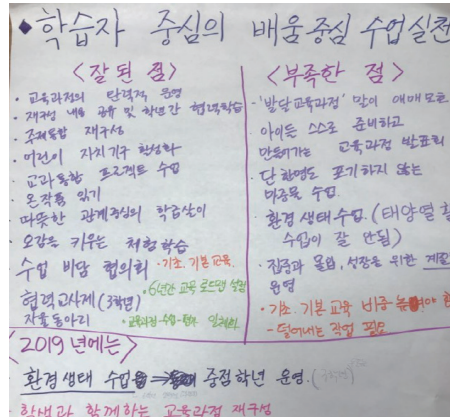 ◆학습자 중심의 배움중심 수업실천
<잘된 점>
• 교육과정의 탄력적 운영
• 재구성 내용 공유 및 학년간 협력학습
• 주제통합 재구성
• 어린이 자치기구 활성화
• 교과통합 프로젝트 수업
• 온작품 읽기
따뜻한 관계중심의 학급살이
오감을 키우는 체험학습
수업 비담 협의회 • 기초.기본교육
협력교사제 (3학년) • 6년간 교육 로드맵 설정
자율동아리 • 교육과정-수업-평가 일체화
<부족한 점>
• '발달교육과정' 말이 애매모호
• 아이들 스스로 준비하고
만들어가는 교육과정 발표회
• 단 한명도 포기하지 않는
수업
• 환경 생태수업. (태양열
수업이 잘 안됨)
• 집중과 몰입, 성장을 위한
운영
• 기초. 기본 교육 비중
- 덜어내는 작업 필요
<2019년에는>
환경생태 수업 ⇒ 중점학년 운영.
학생과 함께하는 교육과정 재구성